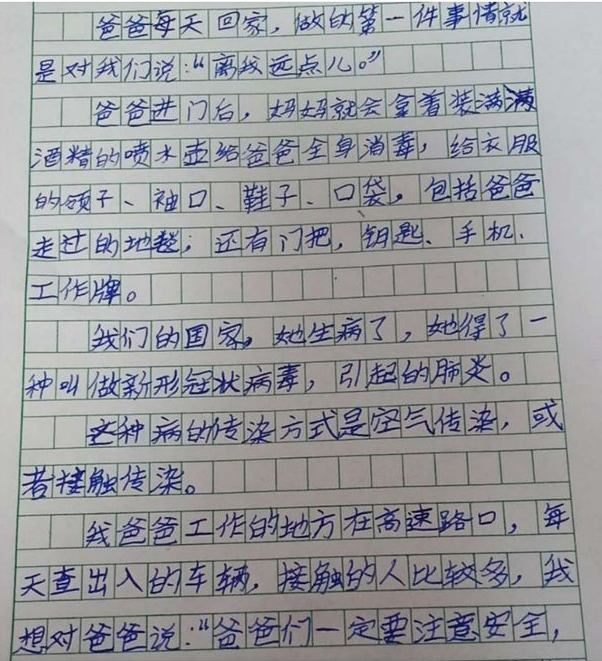 爸爸每天回家，做的第一件事情就
是对我们说：“离我远点儿。”
爸爸进门后，妈妈就会拿着装满满
酒精的喷水壶给爸爸全身消毒，给衣服
的领子、袖口、鞋子、口袋，包括爸爸
走过的地毯；还有门把，钥匙、手机、
工作牌。
我们的国家，她生病了，她得了一
种叫做新形冠状病毒，引起的肺炎。
这种病的传染方式是空气传染，或
者接触传染。
我爸爸工作的地方在高速路口，每
天查出入的车辆，接触的人比较多，我
想对爸爸说：“爸爸们一定要注意安全，